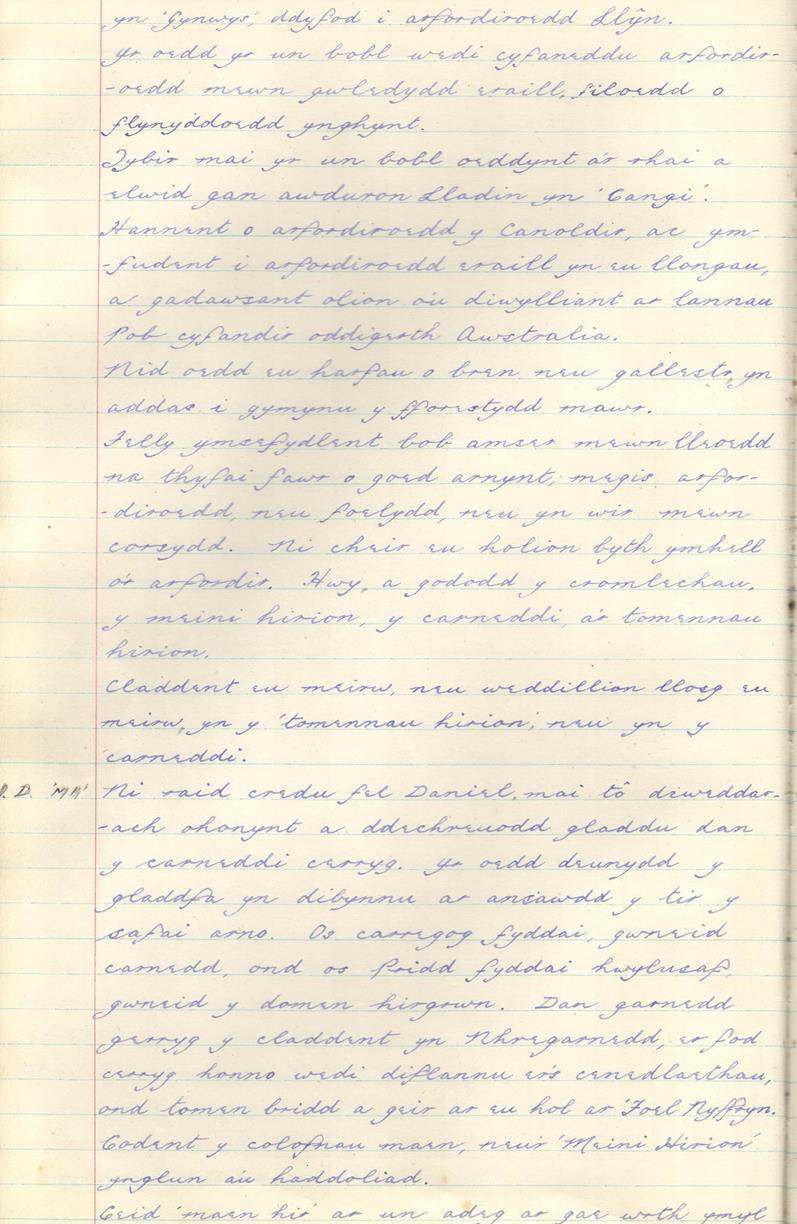 yn 'Gynwys', ddyfod i arfordiroedd Llŷn.
Yr oedd yr un bobl wedi cyfaneddu arfordir-
-oedd mewn gwledydd eraill, filoedd o
flynyddoedd ynghynt.
Tybir mai yr un bobl oeddynt a'r rhai a
elwid gan awduron Lladin yn 'Cangi'.
Hannent o arfordiroedd y Canoldir, ac ym-
-fudent i arfordiroedd eraill yn eu llongau,
a gadawsant olion o'u diwylliant ar lannau
Pob cyfandir oddigerth Awstralia.
Nid oedd eu harfau o bren neu gallestr, yn
addas i gymynu y fforestydd mawr.
Felly ymsefydlent bob amser mewn lleoedd
na thyfai fawr o goed arnynt, megis arfor-
-diroedd, neu foelydd, neu yn wir mewn
corsydd. Ni cheir eu holion byth ymhell
o'r arfordir. Hwy, a gododd y cromlechau,
y meini hirion, y carneddi, a'r tomennau
hirion.
Claddent eu meirw, neu weddillion llosg eu
meirw, yn y 'tomennau hirion', neu yn y
'carneddi.
D. 'MA' Ni raid credu fel Daniel, mai tô diweddar-
-ach ohonynt a ddechreuodd gladdu dan
y carneddi cerryg. Yr oedd deunydd y
gladdfa yn dibynnu ar ansawdd y tir y
safai arno. Os carregog fyddai, gwneid
carnedd, ond os Pridd fyddai hwylusaf,
gwneid y domen hirgrwn. Dan garnedd
gerryg y claddent yn Nhregarnedd, er fod
cerryg honno wedi diflannu ers cenedlaethau,
ond tomen bridd a geir ar eu hol ar 'Foel Nyffryn.
Codent y colofnau maen, neu'r 'Meini Hirion'
ynglun a'u haddoliad.
Ceid 'maen hir' ar un adeg ar gae wrth ymyl